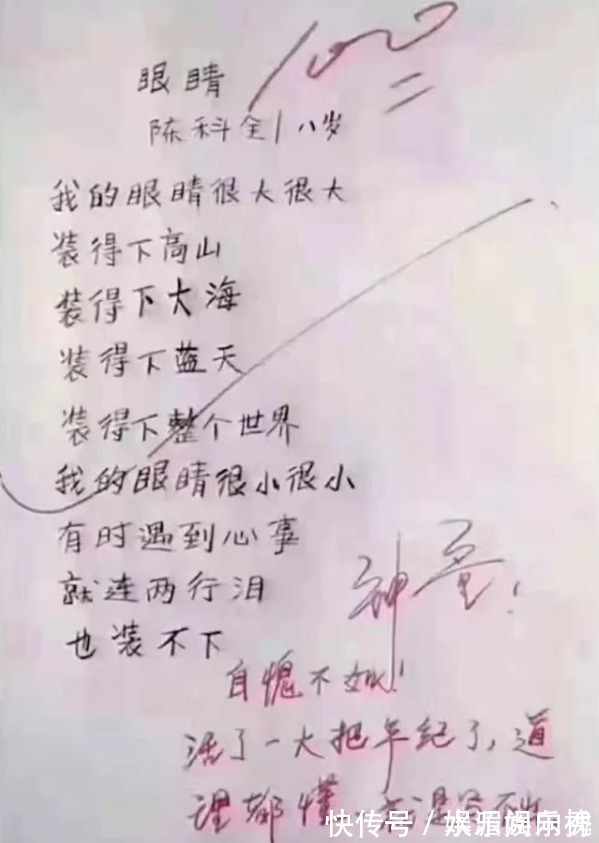 眼睛
100
陈科全 八岁
我的眼睛很大很大
装得下高山
装得下大海
装得下蓝天
装得下整个世界
我的眼睛很小很小
有时遇到心事
就连两行泪
也装不下
神童!
自愧不如!
活了一大把年纪了,道
理都懂
快传号/娱